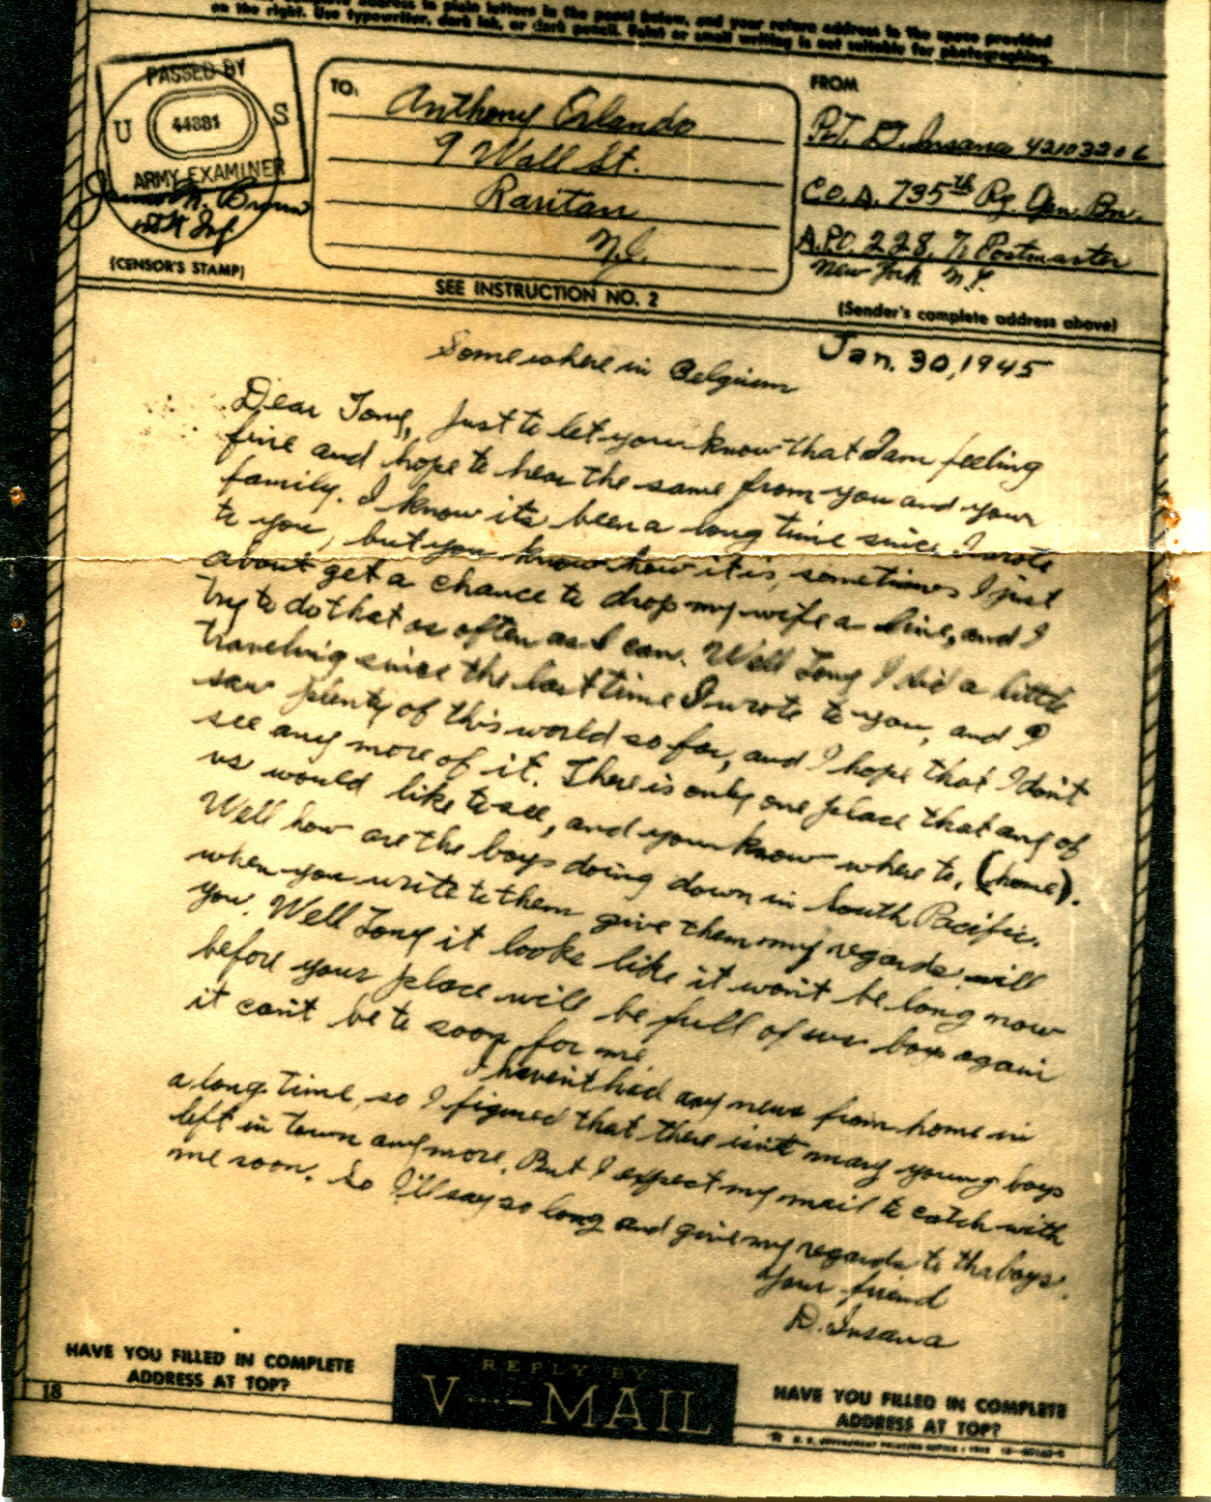 address in plain letters in the panel below, and your return address in the space provided
on the right. Use typewriter, dark ink, or dark pencil. Faint or small writing is not suitable for photographing.
PASSED BY
U 44881 S
ARMY EXAMINER
(CENSOR'S STAMP)
TO:
Anthony Orlando
9 Wall St.
Raritan
N.J.
SEE INSTRUCTION NO. 2
FROM
Pvt. D. Insana 42103206
Co. A. 735th Ry. Opn. Bn.
A.P.O. 228, % Postmaster
New York N.Y.
(Sender's complete address above)
Somewhere in Belgium
Jan. 30, 1945
Dear Tony, Just to let you know that I am feeling
fine and hope to hear the same from you and your
family. I know its been a long time since I wrote
to you, but you know how it is, sometimes I just
about get a chance to drop my wife a line, and I
try to do that as often as I can. Well Tony I did a little
traveling since the last time I wrote to you, and I
saw plenty of this world so far, and I hope that I don't
see any more of it. There is only one place that any of
us would like to see, and you know where to, (home).
Well how are the boys doing down in South Pacific.
when you write to them give them my regards will
you. Well Tony it looks like it won't be long now
before your place will be full of us boys again
it can't be to soon for me
I haven't had any news from home in
a long time, so I figured that there isn't many young boys
left in town anymore. But I expect my mail to catch with
me soon. So I'll say so long and give my regards to the boys.
Your friend
D. Insana
HAVE YOU FILLED IN COMPLETE
ADDRESS AT TOP?
REPLY BY
V···—MAIL
HAVE YOU FILLED IN COMPLETE
ADDRESS AT TOP?
18
U. S. GOVERNMENT PRINTING OFFICE